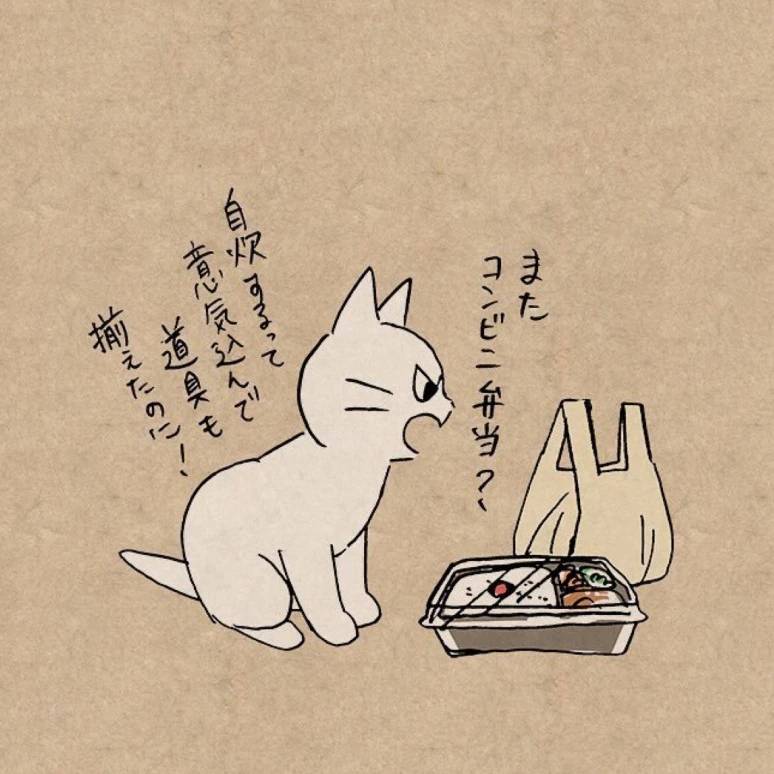 また
コンビニ弁当?
自炊するって
意気込んで
道具も
揃えたのに!